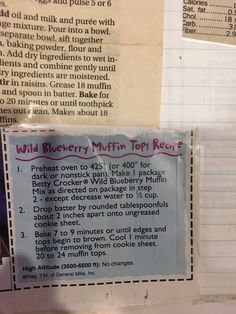 and pulse 5 or 6
dd oil and milk and purée with
ge mixture. Pour into a bowl.
separate bowl, sift together
, baking powder, flour and
n. Add dry ingredients to wet in-
dients and combine gently until
ry ingredients are moistened.
tir in raisins. Grease 18 muffin
and spoon in batter. Bake for
to 20 minutes or until toothpick
nes out clean. Makes about 18
ffins.
Calories
Sat. fat
Chol.
Carb.
Fiber
Wild Blueberry Muffin Tops Recipe
1. Preheat oven to 425° (or 400° for
dark or nonstick pan). Make 1 package
Betty Crocker® Wild Blueberry Muffin
Mix as directed on package in step
2 - except decrease water to ½ cup.
2. Drop batter by rounded tablespoonfuls
about 2 inches apart onto ungreased
cookie sheet.
3. Bake 7 to 9 minutes or until edges and
tops begin to brown. Cool 1 minute
before removing from cookie sheet.
20 to 24 muffin tops.
High Altitude (3500-6500 ft): No changes.
®Reg. T.M. of General Mills, Inc.